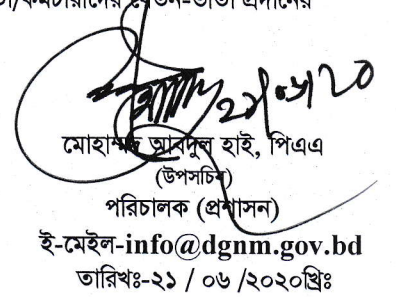 কর্মচারীদের বেতন-ভাতা প্রদানের
২১/০৬/২০
মোহাম্মদ আবদুল হাই, পিএএ
(উপসচিব)
পরিচালক (প্রশাসন)
ই-মেইল-info@dgnm.gov.bd
তারিখঃ-২১ / ০৬ /২০২০খ্রিঃ